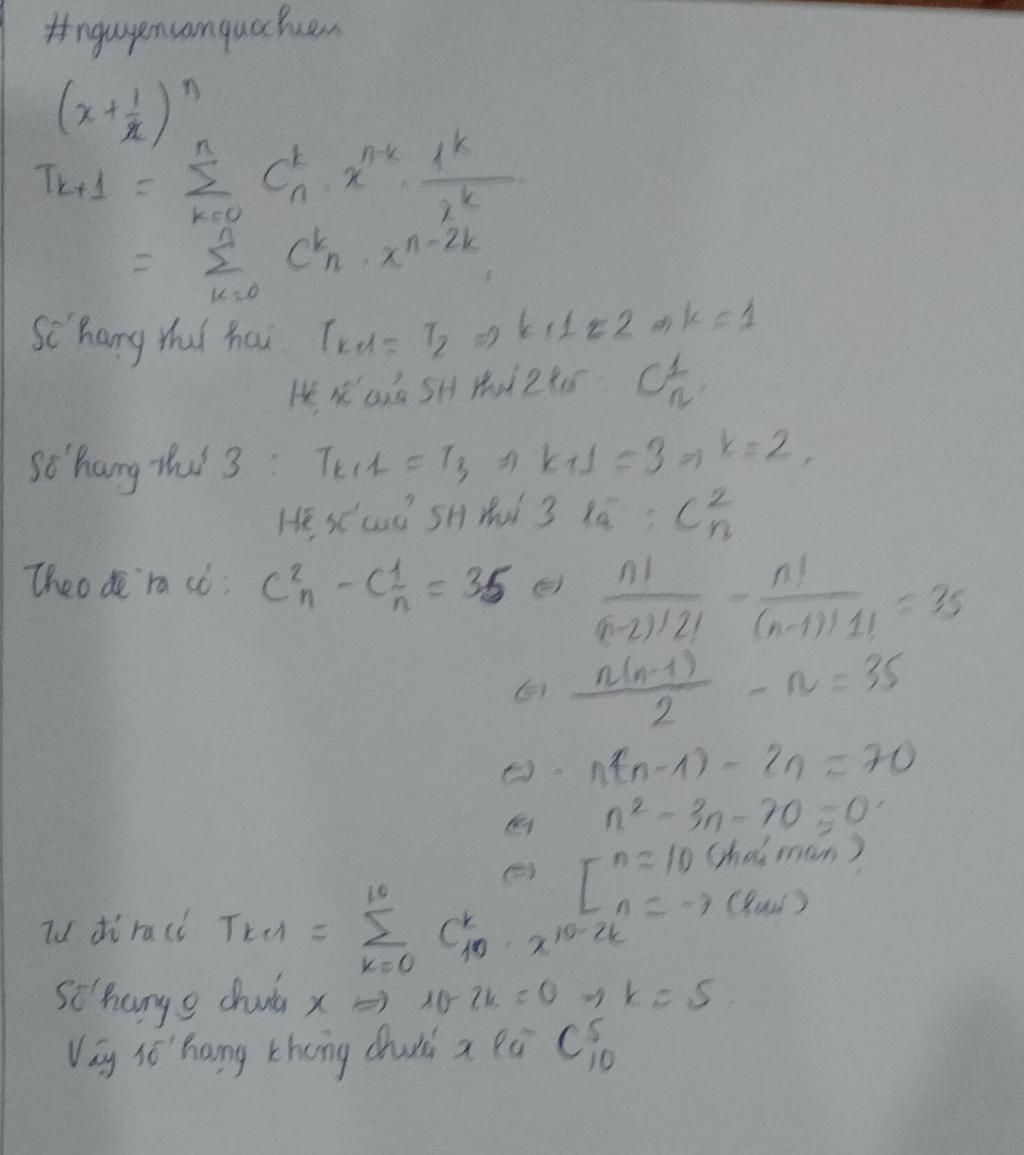 #nguyenvanquochien
(x + 1/x)^n
T_{k+1} = Σ_{k=0}^{n} C_n^k . x^{n-k} . 1^k/x^k
= Σ_{k=0}^{n} C_n^k . x^{n-2k}
Số hạng thứ hai T_{k+1} = T_2 ⇒ k+1=2 ⇒ k=1
Hệ số của SH thứ 2 là : C_n^1.
Số hạng thứ 3 : T_{k+1} = T_3 ⇒ k+1=3 ⇒ k=2.
Hệ số của SH thứ 3 là : C_n^2
Theo đề ra có: C_n^2 - C_n^1 = 35 ⇔ n!/((n-2)!2!) - n!/((n-1)!1!) = 35
⇔ n(n-1)/2 - n = 35
⇔ n(n-1) - 2n = 70
⇔ n² - 3n - 70 = 0
⇔ [ n = 10 (thoả mãn)
n = -7 (loại)
Từ đó ta có T_{k+1} = Σ_{k=0}^{10} C_{10}^k . x^{10-2k}
Số hạng chứa x ⇒ 10-2k=0 ⇒ k=5.
Vậy số hạng không chứa x là C_{10}^5